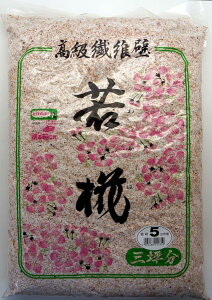 高級繊維壁
若椛
5
三坪分